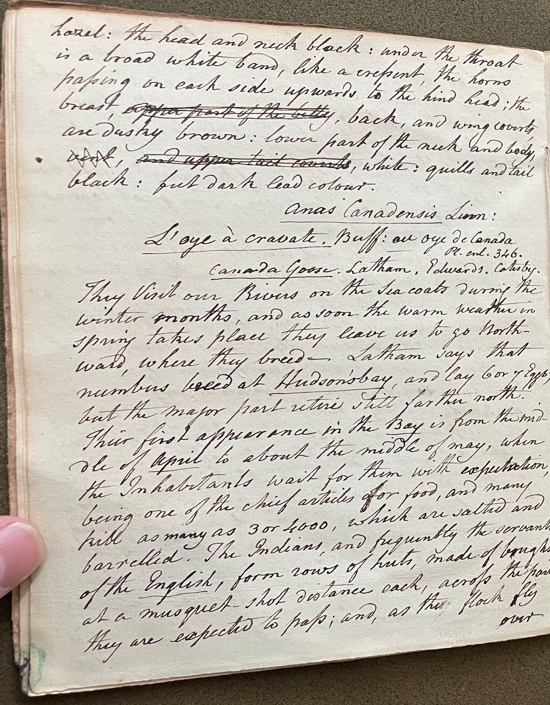 hazel: the head and neck black: under the throat
is a broad white band, like a crescent, the horns
passing on each side upwards to the hind head; the
breast upper part of the belly, back, and wing coverts
are dusky brown: lower part of the neck and body,
vent, and upper tail coverts, white: quills and tail
black: feet dark lead colour.
Anas Canadensis Linn:
L'oye à cravate. Buff: ou oye de Canada
Pl. enl. 346.
Canada Goose. Latham, Edwards. Catesby.
They Visit our Rivers on the Sea coats during the
winter months, and as soon the warm weather in
spring takes place they leave us to go North-
ward, where they breed— Latham says that
numbers breed at Hudson's bay, and lay 6 or 7 Eggs;
but the major part retire still farther north.
Thier first appearance in the Bay is from the mid-
dle of April to about the middle of may, when
the Inhabitants wait for them with expectation,
being one of the chief articles for food, and many
kill as many as 3 or 4000, which are salted and
barrelled. The Indians, and frequently the servants
of the English, form rows of huts, made of boughs
at a musquet shot distance each, across the
they are expected to pass; and, as the flock fly
over